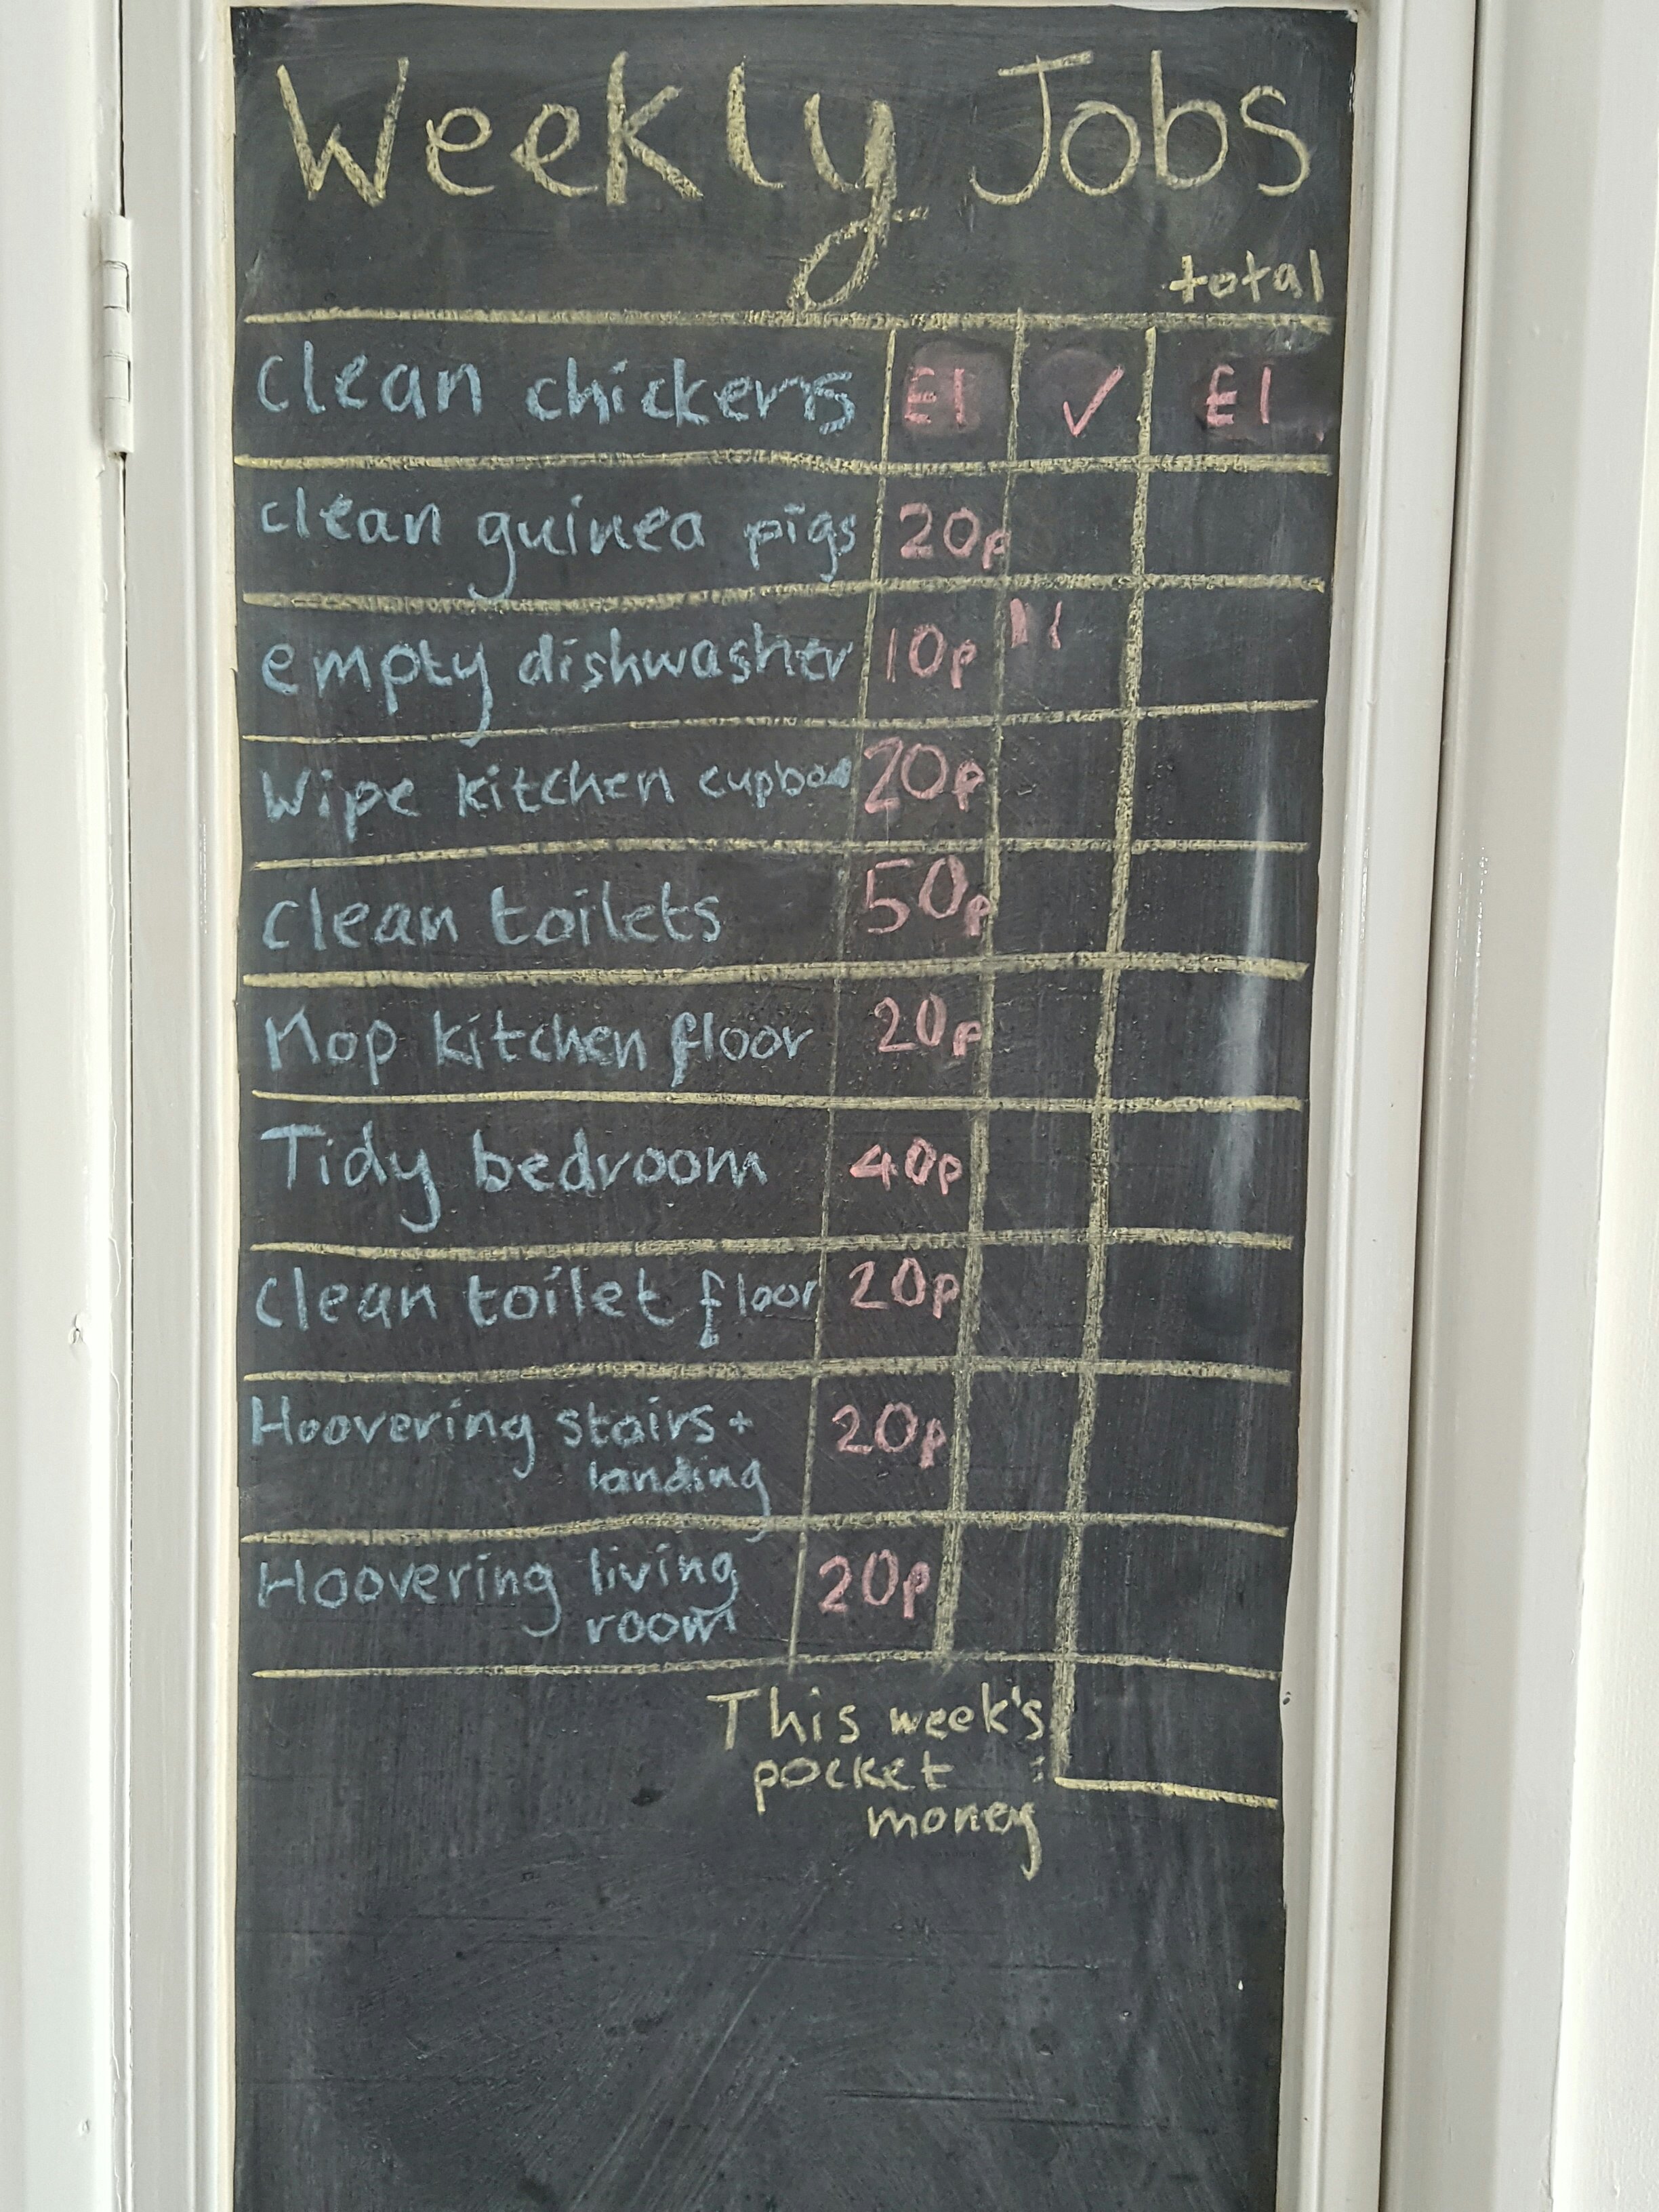 Weekly Jobs
total
clean chickens £1 ✓ £1
clean guinea pigs 20p
empty dishwasher 10p
Wipe kitchen 20p
clean toilets 50p
Mop kitchen floor 20p
Tidy bedroom 40p
clean toilet floor 20p
Hoovering stairs + 20p
landing
Hoovering living 20p
room
This week's
pocket
money